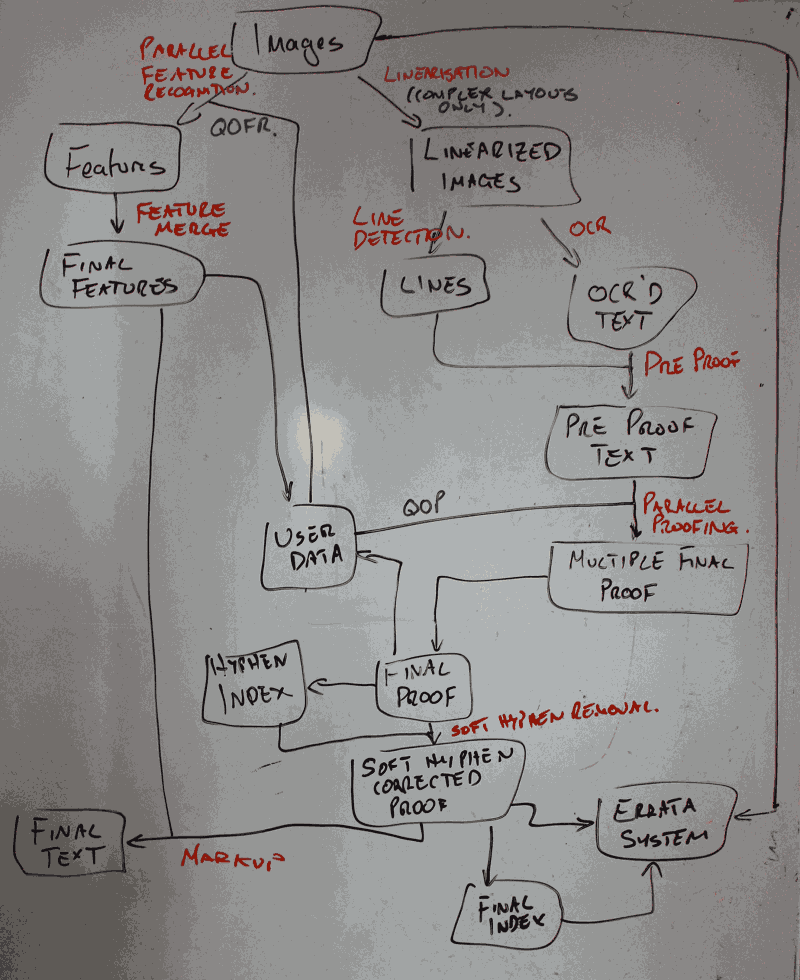 Images
PARALLEL
FEATURE
RECOGNITION.
LINEARISATION
(COMPLEX LAYOUTS
ONLY).
QOFR.
Features
LINEARIZED
IMAGES
FEATURE
MERGE
LINE
DETECTION.
OCR
FINAL
FEATURES
LINES
OCR'D
TEXT
PRE PROOF
PRE PROOF
TEXT
QOP
PARALLEL
PROOFING.
USER
DATA
MULTIPLE FINAL
PROOF
HYPHEN
INDEX
FINAL
PROOF
SOFT HYPHEN REMOVAL.
SOFT HYPHEN
CORRECTED
PROOF
ERRATA
SYSTEM
FINAL
TEXT
MARKUP
FINAL
INDEX